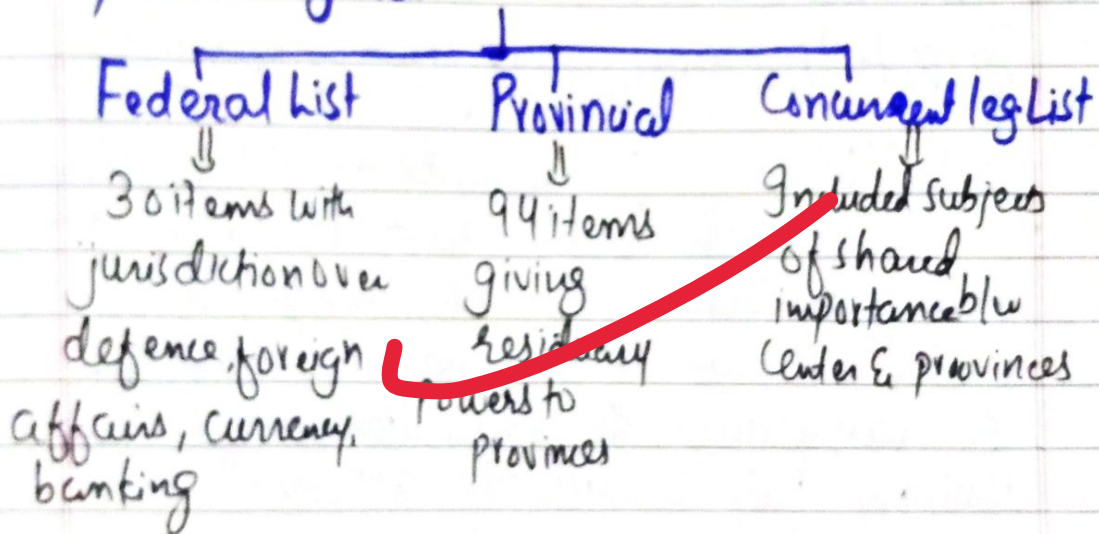 Federal List
30 items with
jurisdiction over
defence, foreign
affairs, currency,
banking
Provincial
94 items
giving
residuary
Powers to
provinces
Concurrent leg List
Included subjects
of shared
importance b/w
Center & proovinces